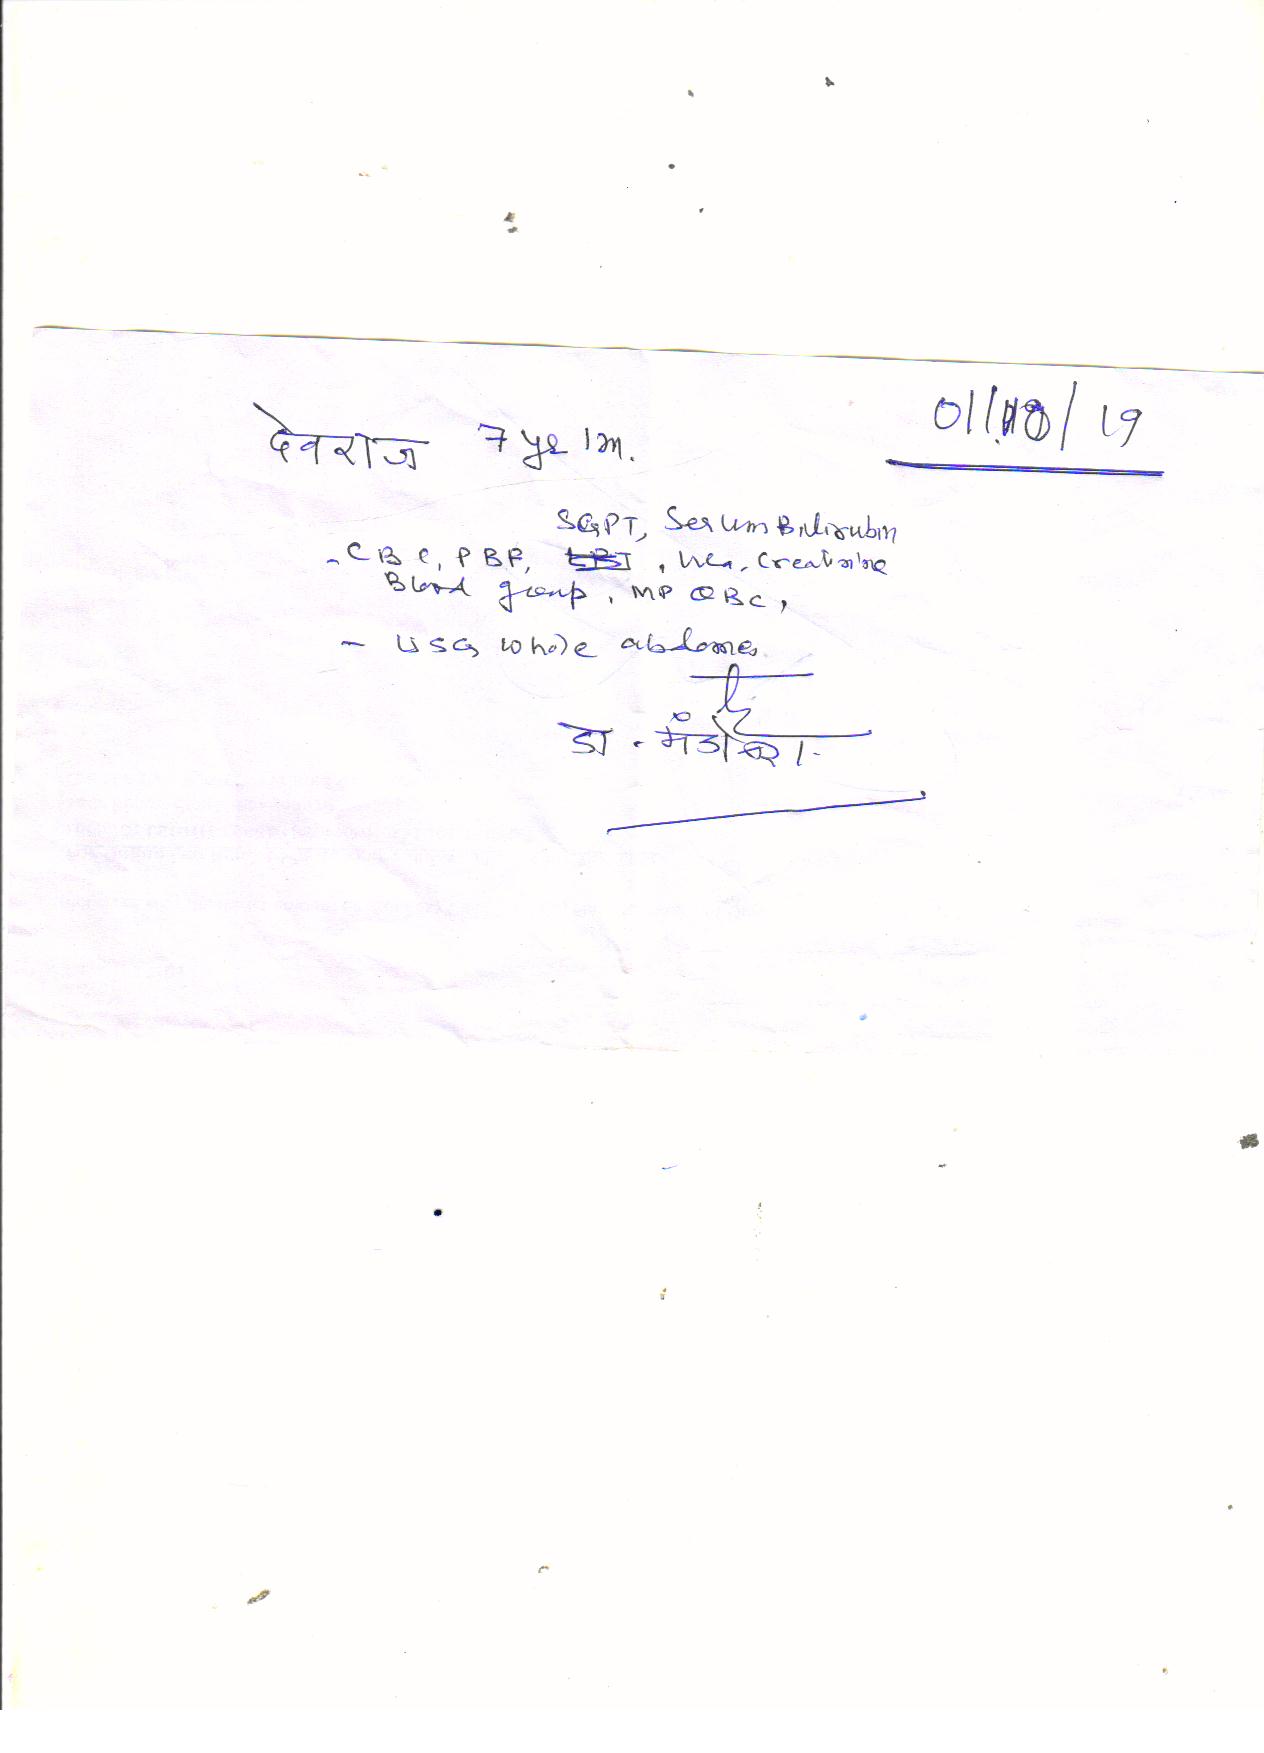 01/10/19
देवराज 7 yr / m.
SGPT, Serum Bilirubin
- CBC, PBF, LBT, Urea, Creatinine
Blood group, MP QBC,
- USG whole abdomen
डा. मंडोरा